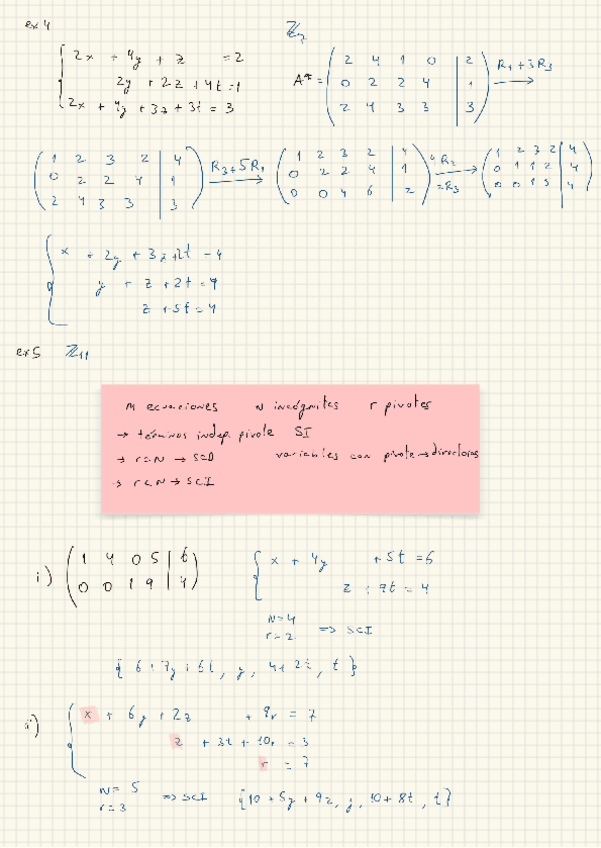 ex 4 ℤ₇
2x + 4y + z = 2
2y + 2z + 4t = 1
2x + 4y + 3z + 3t = 3
A* = ( 2 4 1 0 | 2 ) R₁ + 3R₃ →
0 2 2 4 | 1
2 4 3 3 | 3
( 1 2 3 2 | 4 ) R₃ + 5R₁ → ( 1 2 3 2 | 4 ) 4R₂ → ( 1 2 3 2 | 4 )
0 2 2 4 | 1 0 2 2 4 | 1 =R₃ 0 1 1 2 | 4
2 4 3 3 | 3 0 0 4 6 | 2 0 0 1 5 | 4
x + 2y + 3z + 2t = 4
y + z + 2t = 4
z + 5t = 4
ex 5 ℤ₁₁
M ecuaciones N incógnites r pivotes
→ términos indep. pivote SI
→ r=N → SCD variables con pivote → directoras
→ r<N → SCI
i) ( 1 4 0 5 | 6 ) x + 4y + 5t = 6
0 0 1 9 | 4 z + 9t = 4
N=4
r=2 => SCI
{ 6 + 7y + 6t, y, 4 + 2t, t }
ii) x + 6y + 2z + 8r = 7
z + 3t + 10r = 3
r = 7
N = 5
r = 3 => SCI {10 + 5y + 9z, y, 10 + 8t, t}